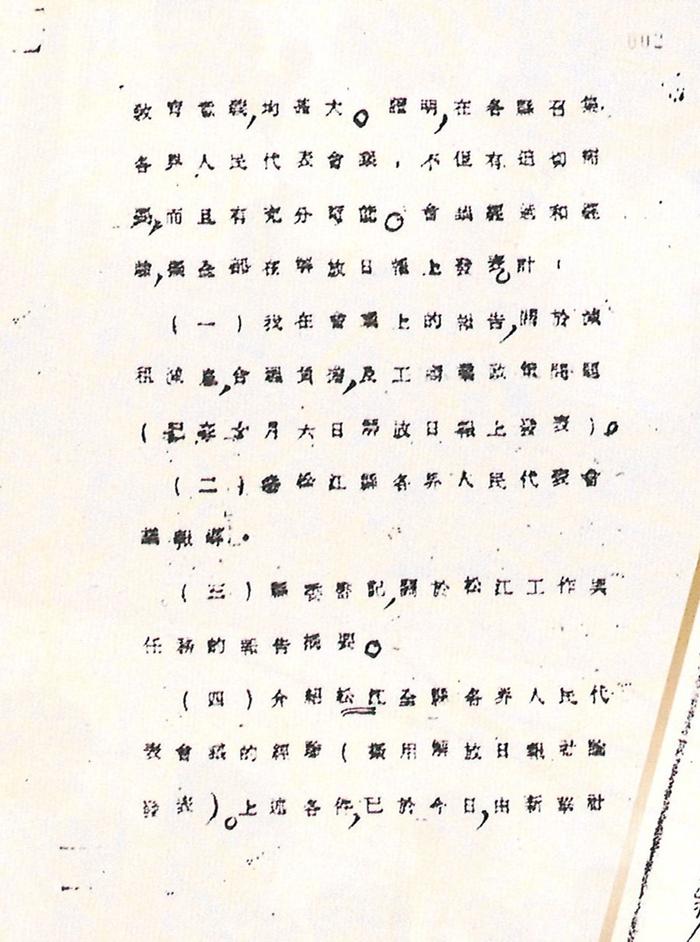 002
教育意義,均甚大。證明,在各縣召集
各界人民代表會議,不但有迫切需
要,而且有充分可能。會議經過和經
驗,擬全部在解放日報上發表。計:
(一)我在會議上的報告,關於減
租減息,合理負擔,及工商業政策問題
(已在 月六日解放日報上發表)。
(二) 松江縣各界人民代表會
議報導.
(三)縣委書記,關於松江工作與
任務的報告摘要。
(四)介紹松江全縣各界人民代
表會議的經驗(擬用解放日報社論
發表)。上述各件,已於今日,由新華社